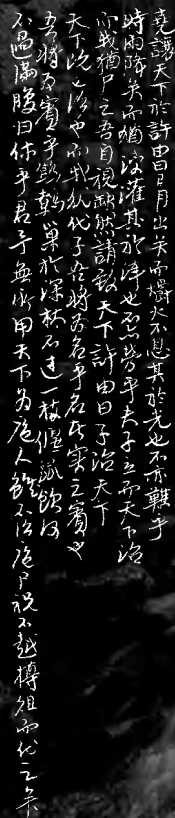 堯讓天下於許由曰日月出矣而爝火不息其於光也不亦難乎
時雨降矣而猶浸灌其於澤也不亦勞乎夫子立而天下治
而我猶尸之吾自視缺然請致天下許由曰子治天下
天下既已治也而我猶代子吾將為名乎名者實之賓也
吾將為賓乎鷦鷯巢於深林不過一枝偃鼠飲河
不過滿腹歸休乎君予無所用天下為庖人雖不治庖尸祝不越樽俎而代之矣